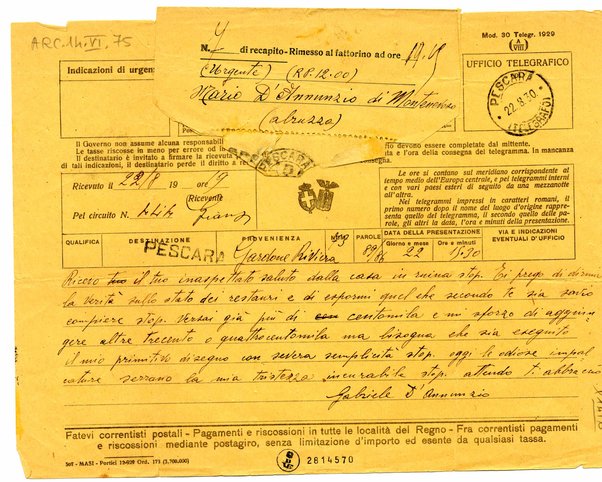 ARC.14.VI.75
Mod. 30 Telegr. 1929
(A VIII)
N. 4 di recapito - Rimesso al fattorino ad ore 19.45
(Urgente) (RP.12.00)
Mario D'Annunzio di Montenevoso
(abruzzo)
Indicazioni di urgen
UFFICIO TELEGRAFICO
PESCARA
22.8.30
(TELEGRAFO)
Il Governo non assume alcuna responsabili
Le tasse riscosse in meno per errore od in
Il destinatario è invitato a firmare la ricevuta
di tali indicazioni, il destinatario perde il diritto a
devono essere completate dal mittente.
ta e l'ora della consegna del telegramma. In mancanza
PESCARA
Ricevuto il 22/8 19 ore 19
Pel circuito N.
Ricevente
Le ore si contano sul meridiano corrispondente al
tempo medio dell'Europa centrale, e pei telegrammi interni
e con vari paesi esteri di seguito da una mezzanotte
all'altra.
Nei telegrammi impressi in caratteri romani, il
primo numero dopo il nome del luogo d'origine rappresenta
quello del telegramma, il secondo quello delle
parole, gli altri la data, l'ora e i minuti della presentazione.
QUALIFICA DESTINAZIONE PROVENIENZA PAROLE DATA DELLA PRESENTAZIONE VIA E INDICAZIONI EVENTUALI D'UFFICIO
Giorno e mese Ore e minuti
PESCARA Gardone Riviera 89/86 22 15.30
Ricevo il tuo inaspettato saluto dalla casa in ruina stop. Ti prego di dirmi
la verità sullo stato dei restauri e di espormi quel che secondo te sia savio
compiere stop. Versai già più di centomila e mi sforzo di aggiun
gere altre trecento o quattrocentomila ma bisogna che sia eseguito
il mio primitivo disegno con severa semplicità stop. oggi le odiose impal
cature serrano la mia tristezza incurabile stop. attendo ti abbraccio
Gabriele D'Annunzio
Fatevi correntisti postali - Pagamenti e riscossioni in tutte le località del Regno - Fra correntisti pagamenti
e riscossioni mediante postagiro, senza limitazione d'importo ed esente da qualsiasi tassa.
307 - MASI - Portici 10-929 Ord. 171 (3,700,000)
2614570